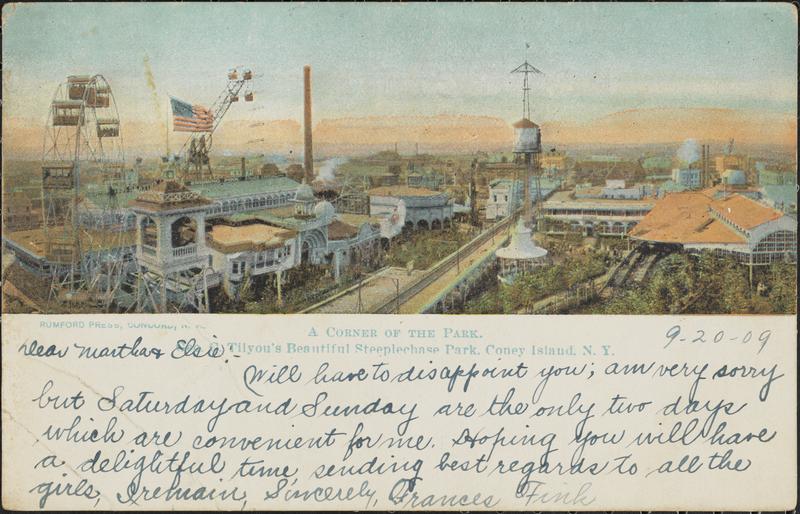 RUMFORD PRESS, CONCORD, N. H.
A CORNER OF THE PARK.
Geo. C. Tilyou's Beautiful Steeplechase Park, Coney Island, N. Y.
9-20-09
Dear Martha & Elsie:-
Will have to disappoint you; am very sorry
but Saturday and Sunday are the only two days
which are convenient for me. Hoping you will have
a delightful time, sending best regards to all the
girls, I remain, Sincerely, Frances Fink